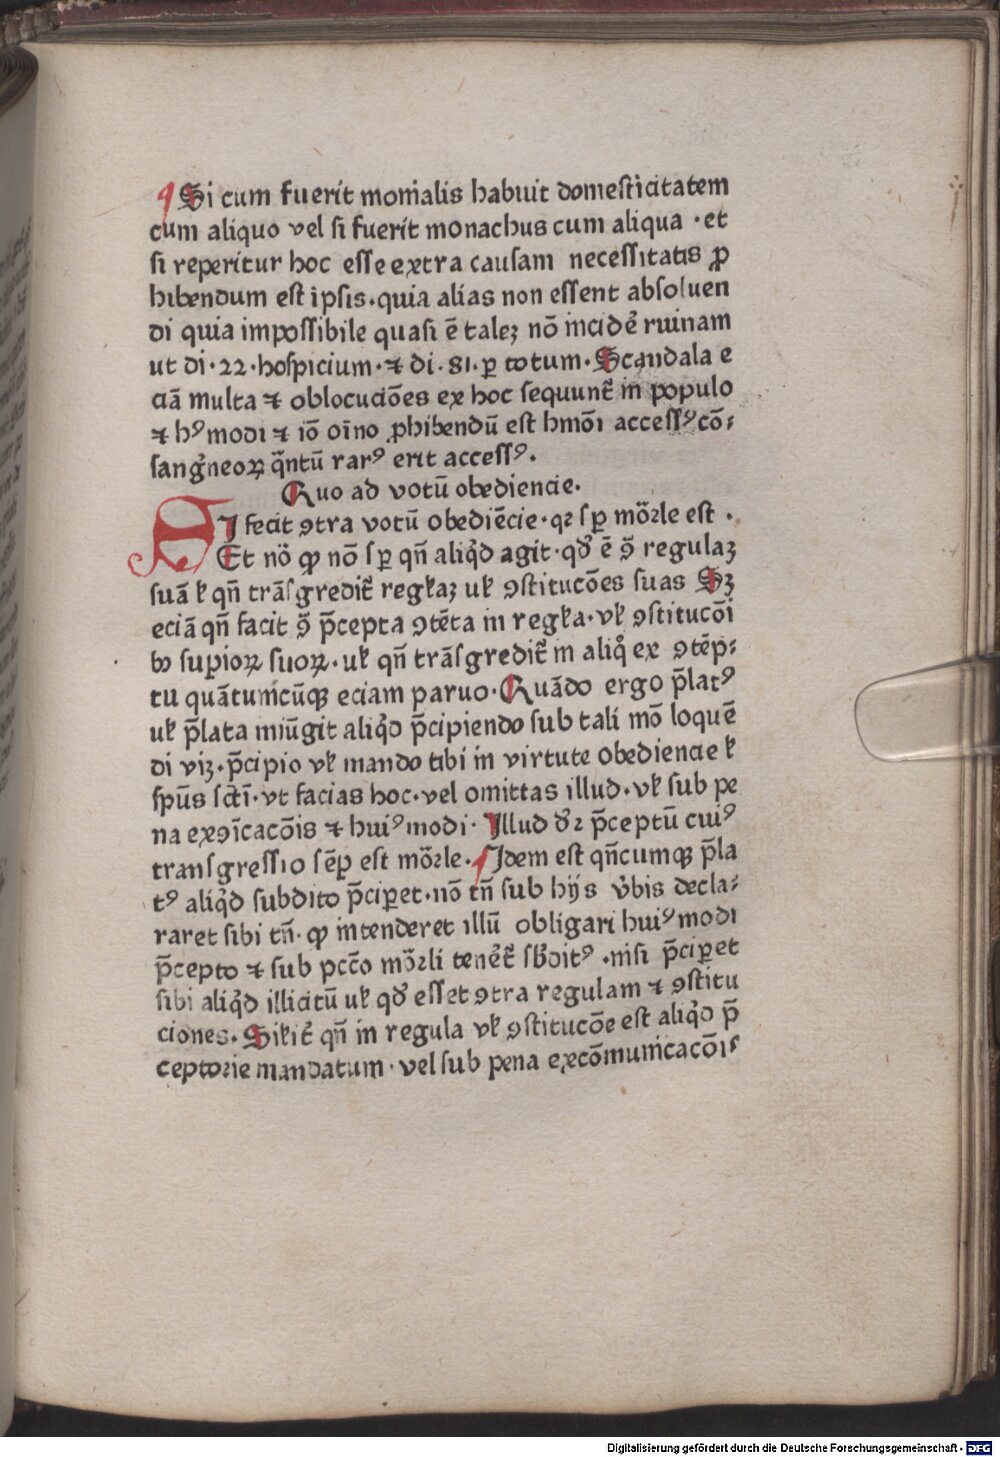 ¶ Si cum fuerit monialis habuit domesticitatem
cum aliquo vel si fuerit monachus cum aliqua · et
si reperitur hoc esse extra causam necessitatis ꝓ
hibendum est ipsis · quia alias non essent absoluen
di quia impossibile quasi ē taleꝫ nō incidẽ ruinam
ut di · 22 · hospicium · ⁊ di · 81 · ꝑ totum · Scandala e
ciā multa ⁊ oblocuciōes ex hoc sequunt᷑ in populo
⁊ hꝰ modi ⁊ iō oīno ꝓhibendū est hmōi accessꝰ cō⸗
sangͥneoꝝ qͣ̄ntū rarꝰ erit accessꝰ ·
Quo ad votū obediencie ·
SI fecit ꝯtra votū obediēcie · qꝛ sꝑ mōꝛle est ·
Et nō ꝙ nō sꝑ qn̄ aliqͥd agit · qđ ē ꝯͣ regulaꝫ
suā ł qn̄ trāsgredit᷑ regłaꝫ uł ꝯstitucōes suas Sꝫ
eciā qn̄ facit ꝯͣ p̄cepta ꝯtēta in regła · vł ꝯstitucōi
bꝰ suꝑioꝝ suoꝝ · uł qn̄ trāsgredit᷑ in aliqͦ ex ꝯtēp⸗
tu quātumcūqꝫ eciam paruo · Quādo ergo p̄latꝰ
uł p̄lata iniūgit aliqͥd p̄cipiendo sub tali mō loquē
di viꝫ · p̄cipio vł mando tibi in virtute obediencie ł
spūs sc̄tī · vt facias hoc · vel omittas illud · vł sub pe
na exꝯīcacōis ⁊ huiꝰmodi · Illud dꝛ p̄ceptū cuiꝰ
transgressio sēꝑ est mōꝛle · ¶ Idem est qn̄cumqꝫ p̄la
tꝰ aliqͥd subdito p̄ciꝑet · nō tn̄ sub hijs v̓bis decla⸗
raret sibi tn̄ · ꝙ intenderet illū obligari huiꝰmodi
p̄cepto ⁊ sub pcc̄o mōꝛli tenẽt᷑ sb̓ditꝰ · nisi p̄ciꝑet
sibi aliqͥd illicitū uł qđ esset ꝯtra regulam ⁊ ꝯstitu
ciones · Siłit᷑ qn̄ in regula vł ꝯstitucōe est aliqͥd p̄
ceptorie mandatum · vel sub pena excōmunicacōis
Digitalisierung gefördert durch die Deutsche Forschungsgemeinschaft - DFG